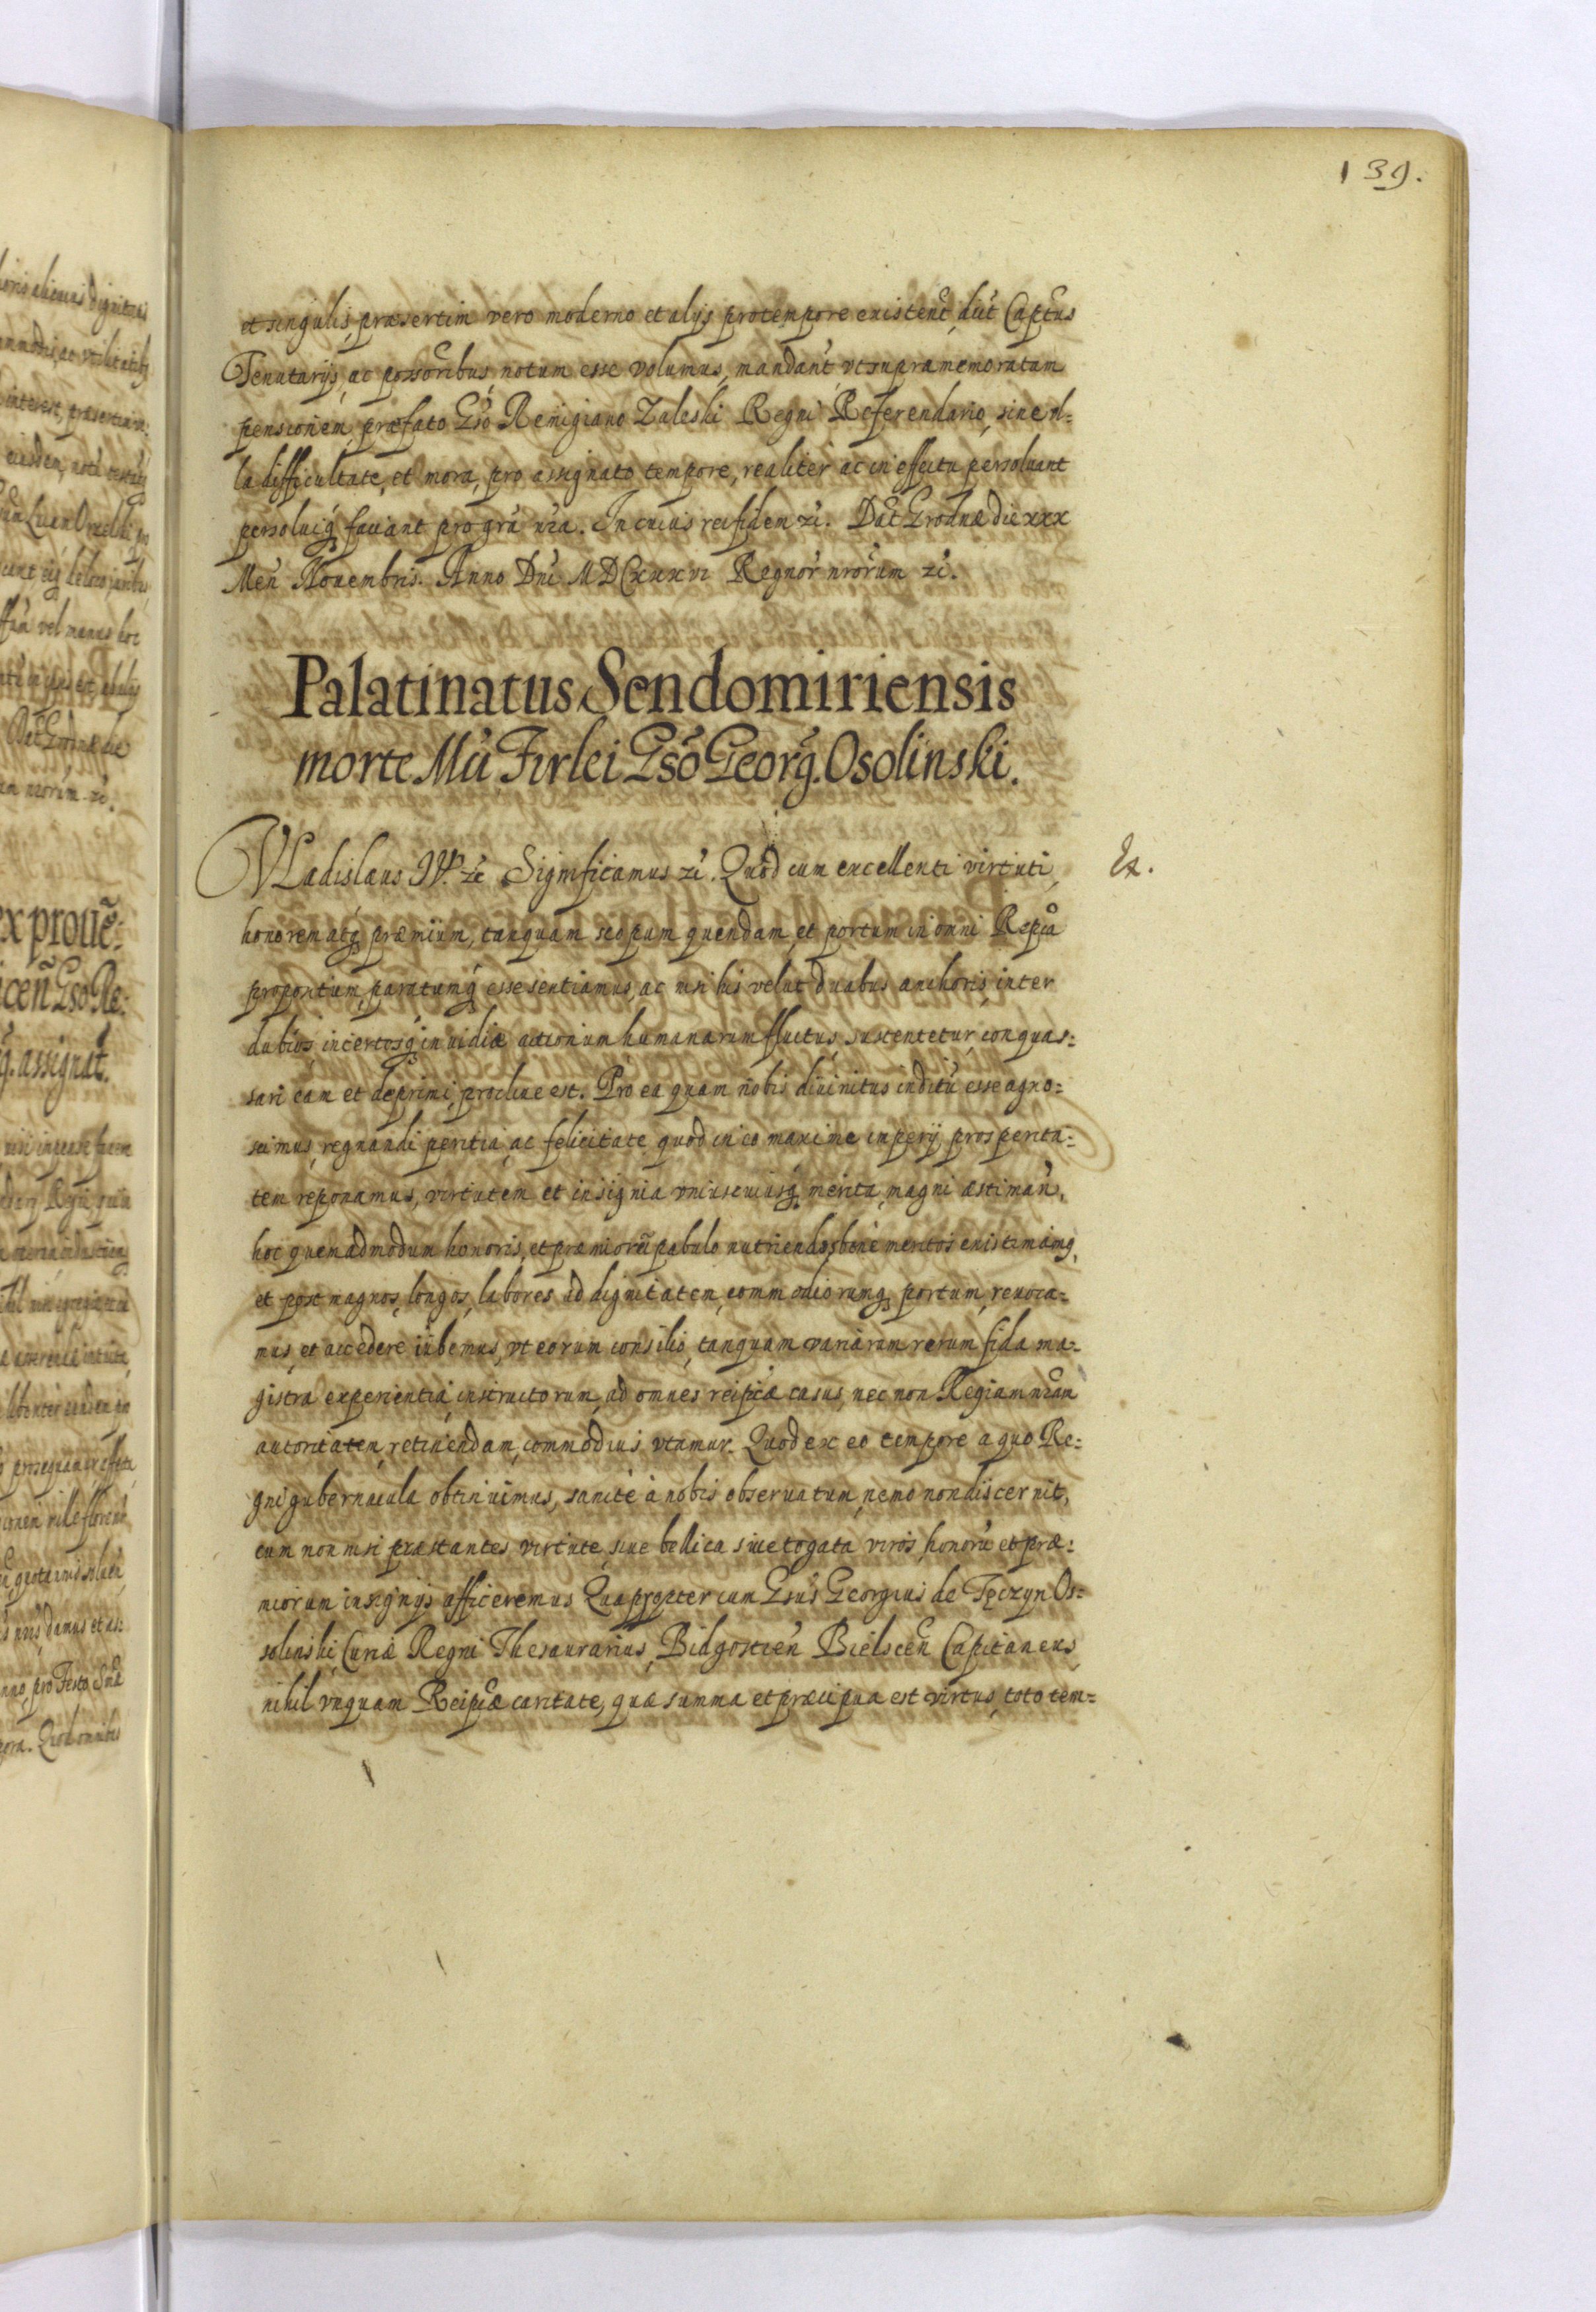 139.
et singulis, præsertim vero moderno et alijs protempore existent̃, dict̃ Capt̃us
Tenutarijs, ac possõribus, notum esse volumus, mandan̄t vt supramemoratam
pensionem, præfato Gso Remigiano Zaleski Regni Referendario, sine vl-
la difficultate, et mora, pro assignato tempore, realiter ac in effectu persoluant
persoluiq́; faciant pro grã nr̃a. In cuius rei fidem ꝛc̃. Dat̃ Grodnæ die xxx
Men̄ Nouembris. Anno Dn̄i MDCxxxvi Regnor̃ nrõrum ꝛc̃.
Palatinatus Sendomiriensis
morte Mci Firlei Gsõ Georg̃. Osolinski.
VLadislaus IV. ꝛc̃ Significamus ꝛc̃. Quod cum excellenti virtuti,
Ex.
honorem atq; præmium, tanquam scopum quendam, et portum in omni Repca
propositum, paratumq́; esse sentiamus, ac nisi his velut duabus anchoris, inter
dubios, incertosq́; inuidiæ actionum humanarum fluctus, sustentetur, conquas-
sari eam et deprimi, procliue est. Pro ea quam nobis diuinitus inditũ esse agno-
scimus, regnandi peritia, ac felicitate quod in eo maxime imperij, prosperita-
tem reponamus, virtutem et insignia vniuscuiusq́; merita, magni æstiman̄,
hoc quemadmodum honoris, et præmiorũ pabulo nutriendos, bene meritos existimamq;,
et post magnos, longos, labores ad dignitatem, commodiorumq; portum, reuoca-
mus, et accedere iubemus, vt eorum consilio, tanquam variarum rerum fida ma-
gistra experientia, instructorum, ad omnes reipcæ casus, nec non Regiam nr̃am
autoritatem, retinendam, commodius vtamur. Quod ex eo tempore a quo Re-
gni gubernacula obtinuimus, sancte à nobis obseruatum, nemo non discernit,
cum non nisi præstantes virtute, siue bellica siue togata, viros, honorũ et præ-
miorum insignijs afficeremus Quapropter cum Gsus Georgius de Tęczyn Os-
solinski, Curiæ Regni Thesaurarius, Bidgostien̄ Bielscen̄ Capitaneus,
nihil vnquam Reipcæ caritate, quæ summa et præcipua est virtus, toto tem-